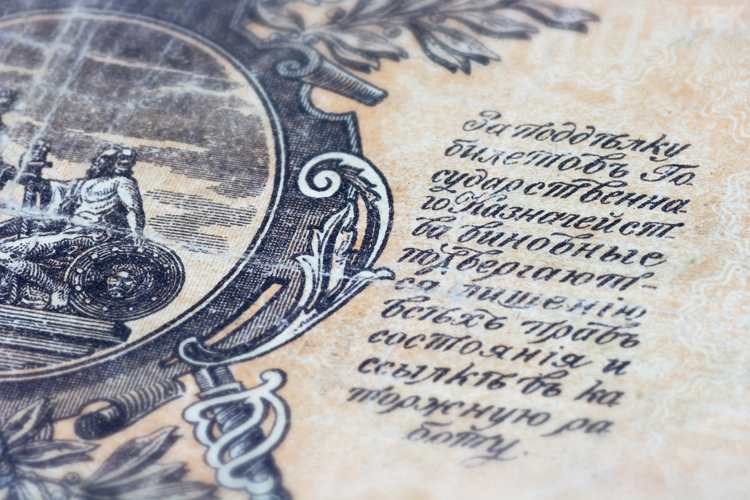 За поддѣлку
билетовъ Го
сударственна
го Казначейст
ва виновные
подвергают-
ся лишенію
всѣхъ правъ
состоянія и
ссылкѣ въ ка
торжную ра
боту.